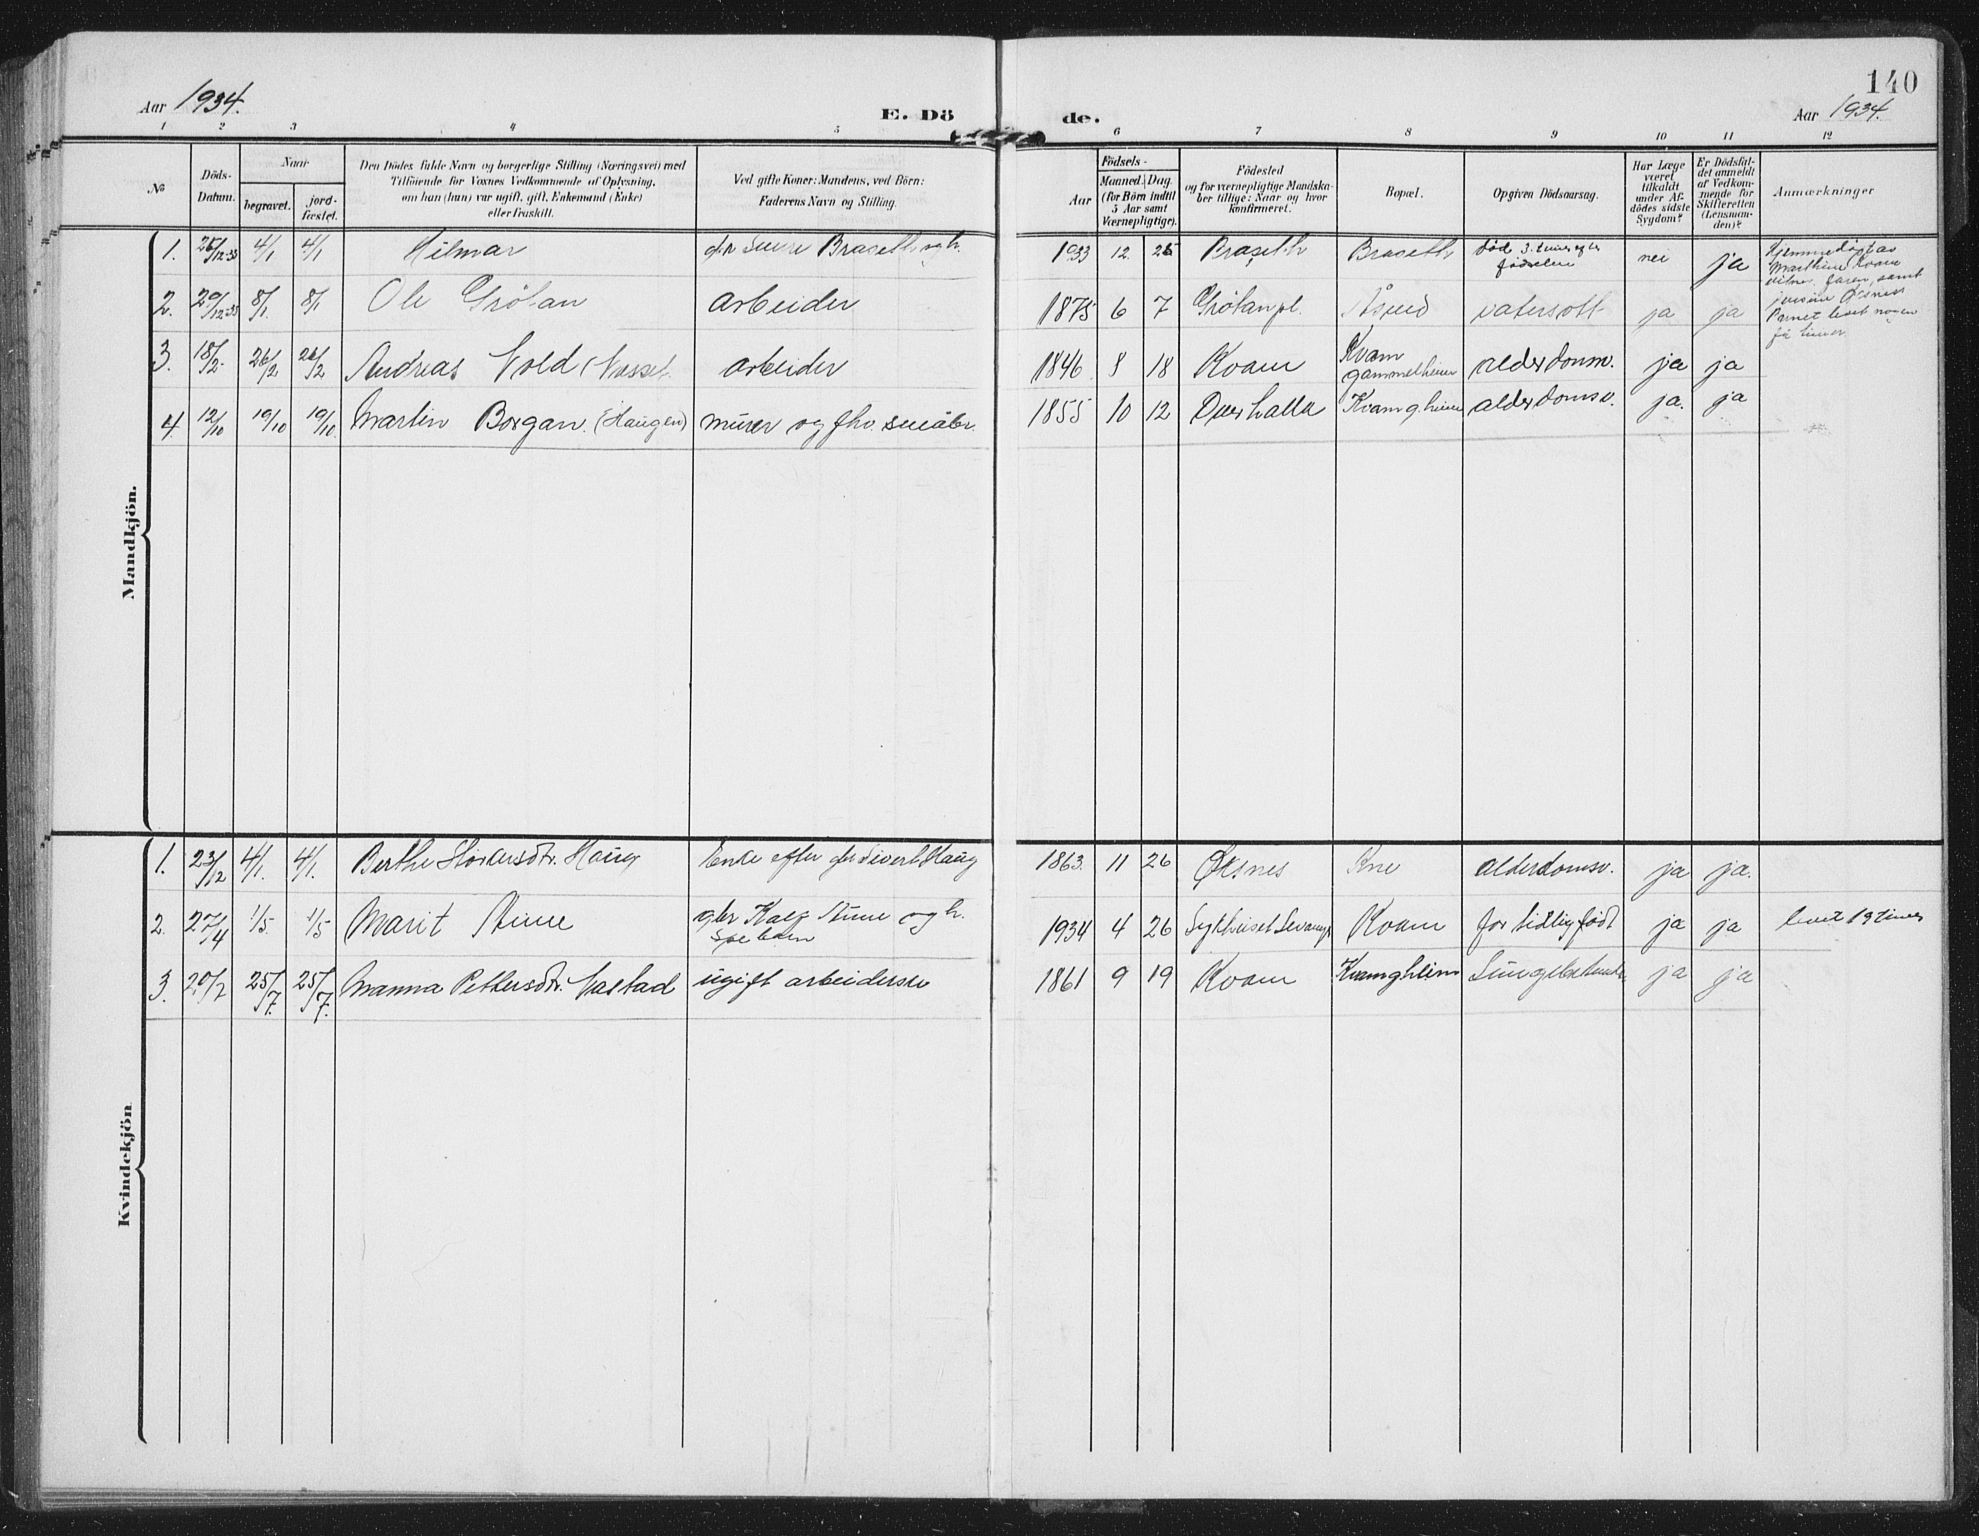 140
Aar 1934.
E. Dö
de.
Aar 1934.
1 2 3 4 5 6 7 8 9 10 11 12
No
Döds-
Datum.
Naar
begravet.
jord-
fæstet.
Den Dödes fulde Navn og borgerlige Stilling (Næringsvei) med
Tilföiende for Voxnes Vedkommende af Oplysning,
om han (hun) var ugift, gift, Enkemand (Enke)
eller fraskilt.
Ved gifte Koner: Mandens, ved Börn:
Faderens Navn og Stilling.
Födsels-
Aar
Maaned. Dag.
(for Börn indtil
5 Aar samt
Værnepligtige).
Födested
og for værnepligtige Mandska-
ber tillige: Naar og hvor
Konfirmeret.
Bopæl.
Opgiven Dödsaarsag.
Har Læge
været
tilkaldt
under Af-
dödes sidste
Sygdom?
Er Dödsfal-
det anmeldt
af Vedkom-
mende for
Skifteretten
(Lensman-
den)?
Anmærkninger
Mandkjön.
1. 26/12-33 4/1 4/1 Hilmar Braseth og h. 1933 12 25 Braseth Braseth død 3 timer efter nei ja Hjemmedøpt av
fødselen
Marthine Kvam
faren, samt
2. 29/12-33 8/1. 8/1 Ole Grötan arbeider 1875 6 7 Grötanpl. vatersott ja ja Øksnes
Barnet levet nogen
få timer.
3. 18/2- 26/2 26/2 Andreas Vold arbeider 1846 8 18 Kvam Kvam
gammelheim alderdomsv. ja ja
4. 12/10 19/10 19/10 Martin Borgan. (Haugen) murer og fhv. småbr. 1855 10 12 Overhalla Kvam g.heim alderdomsv. ja. ja
Kvindekjön
1. 23/12 4/1. 4/1. Berthe Haug Enke efter Sivert Haug 1863. 11 26 Øksnes alderdomsv. ja ja.
2. 27/4 1/5. 1/5 Marit gbr og h. 1934 4 26 Sykhuset Levanger Kvam for tidlig født ja ja levet 19 timer
3. 20/7 25/7. 25/7. Manna Pettersdtr. Vastad ugift arbeiderske 1861 9 19 Kvam Kvamgheim ja ja